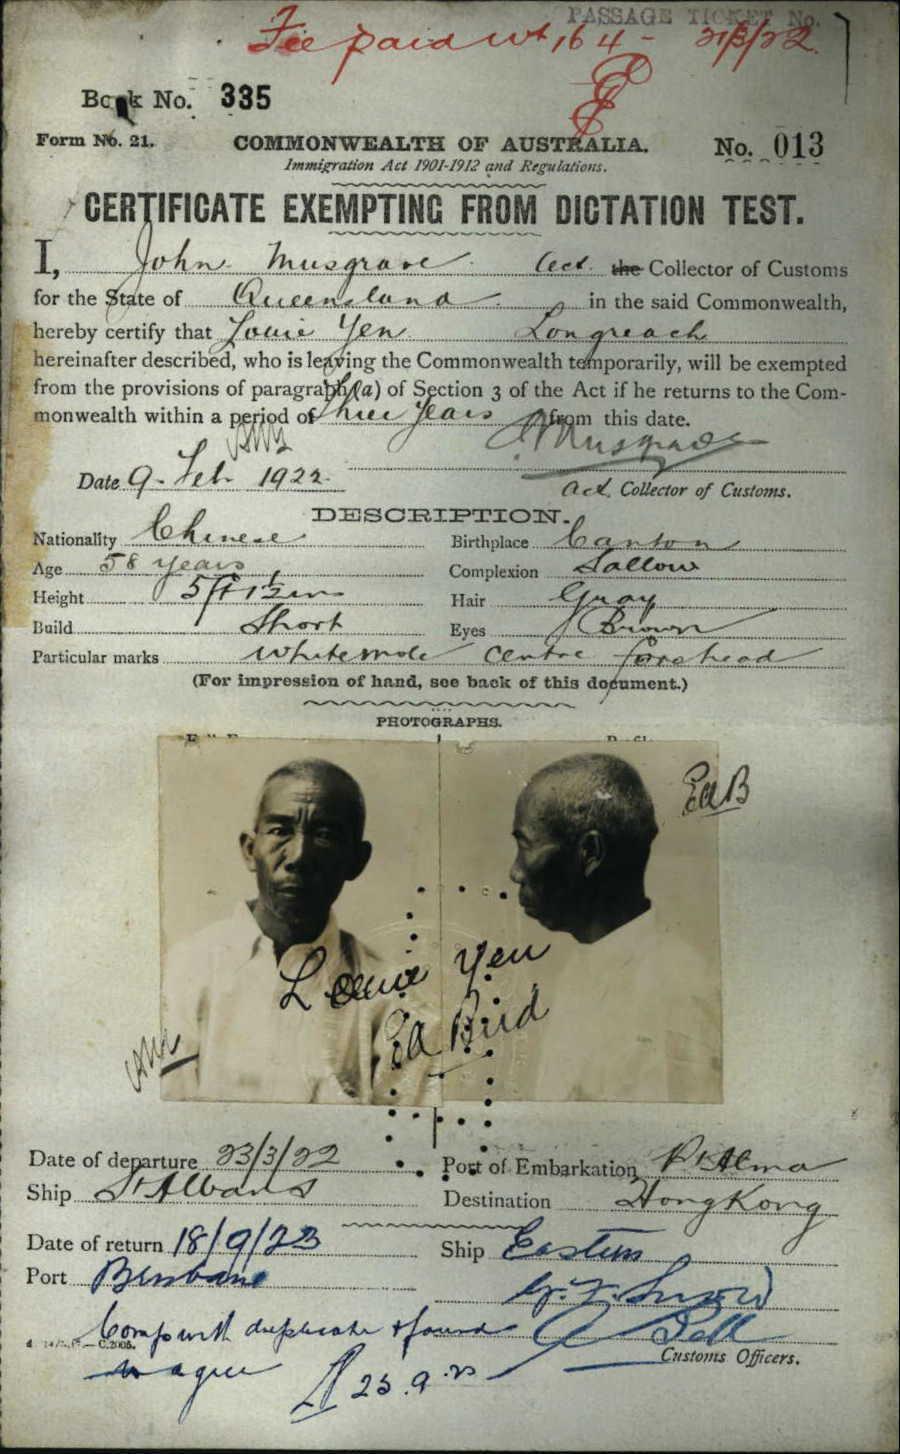 PASSAGE TICKET No.
Fee paid 21/3/22
Book No. 335
Form No. 21. COMMONWEALTH OF AUSTRALIA. No. 013
Immigration Act 1901-1912 and Regulations.
CERTIFICATE EXEMPTING FROM DICTATION TEST.
I, John Musgrave Act. the Collector of Customs
for the State of Queensland in the said Commonwealth,
hereby certify that Louie Yen Longreach
hereinafter described, who is leaving the Commonwealth temporarily, will be exempted
from the provisions of paragraph (a) of Section 3 of the Act if he returns to the Com-
monwealth within a period of three years from this date.
Musgrave
Date 9 Feb 1922
Act. Collector of Customs.
DESCRIPTION.
Nationality Chinese Birthplace Canton
Age 58 years Complexion Sallow
Height 5 ft 1½ in Hair Gray
Build Short Eyes Brown
Particular marks White mole centre forehead
(For impression of hand, see back of this document.)
PHOTOGRAPHS.
EAB
Louie Yen
EA Bird
Date of departure 23/3/22 Port of Embarkation Pt Alma
Ship St Albans Destination Hong Kong
Date of return 18/9/23 Ship Eastern
Port Brisbane
Comp with duplicate & found
to agree
23.9.23
Customs Officers.